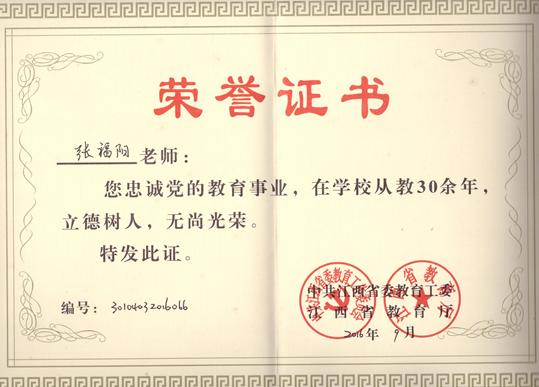 荣誉证书
张福阳老师：
您忠诚党的教育事业，在学校从教30余年，
立德树人，无尚光荣。
特发此证。
中共江西省委教育工委
江西省教育厅
编号：30104032016066
2016年9月